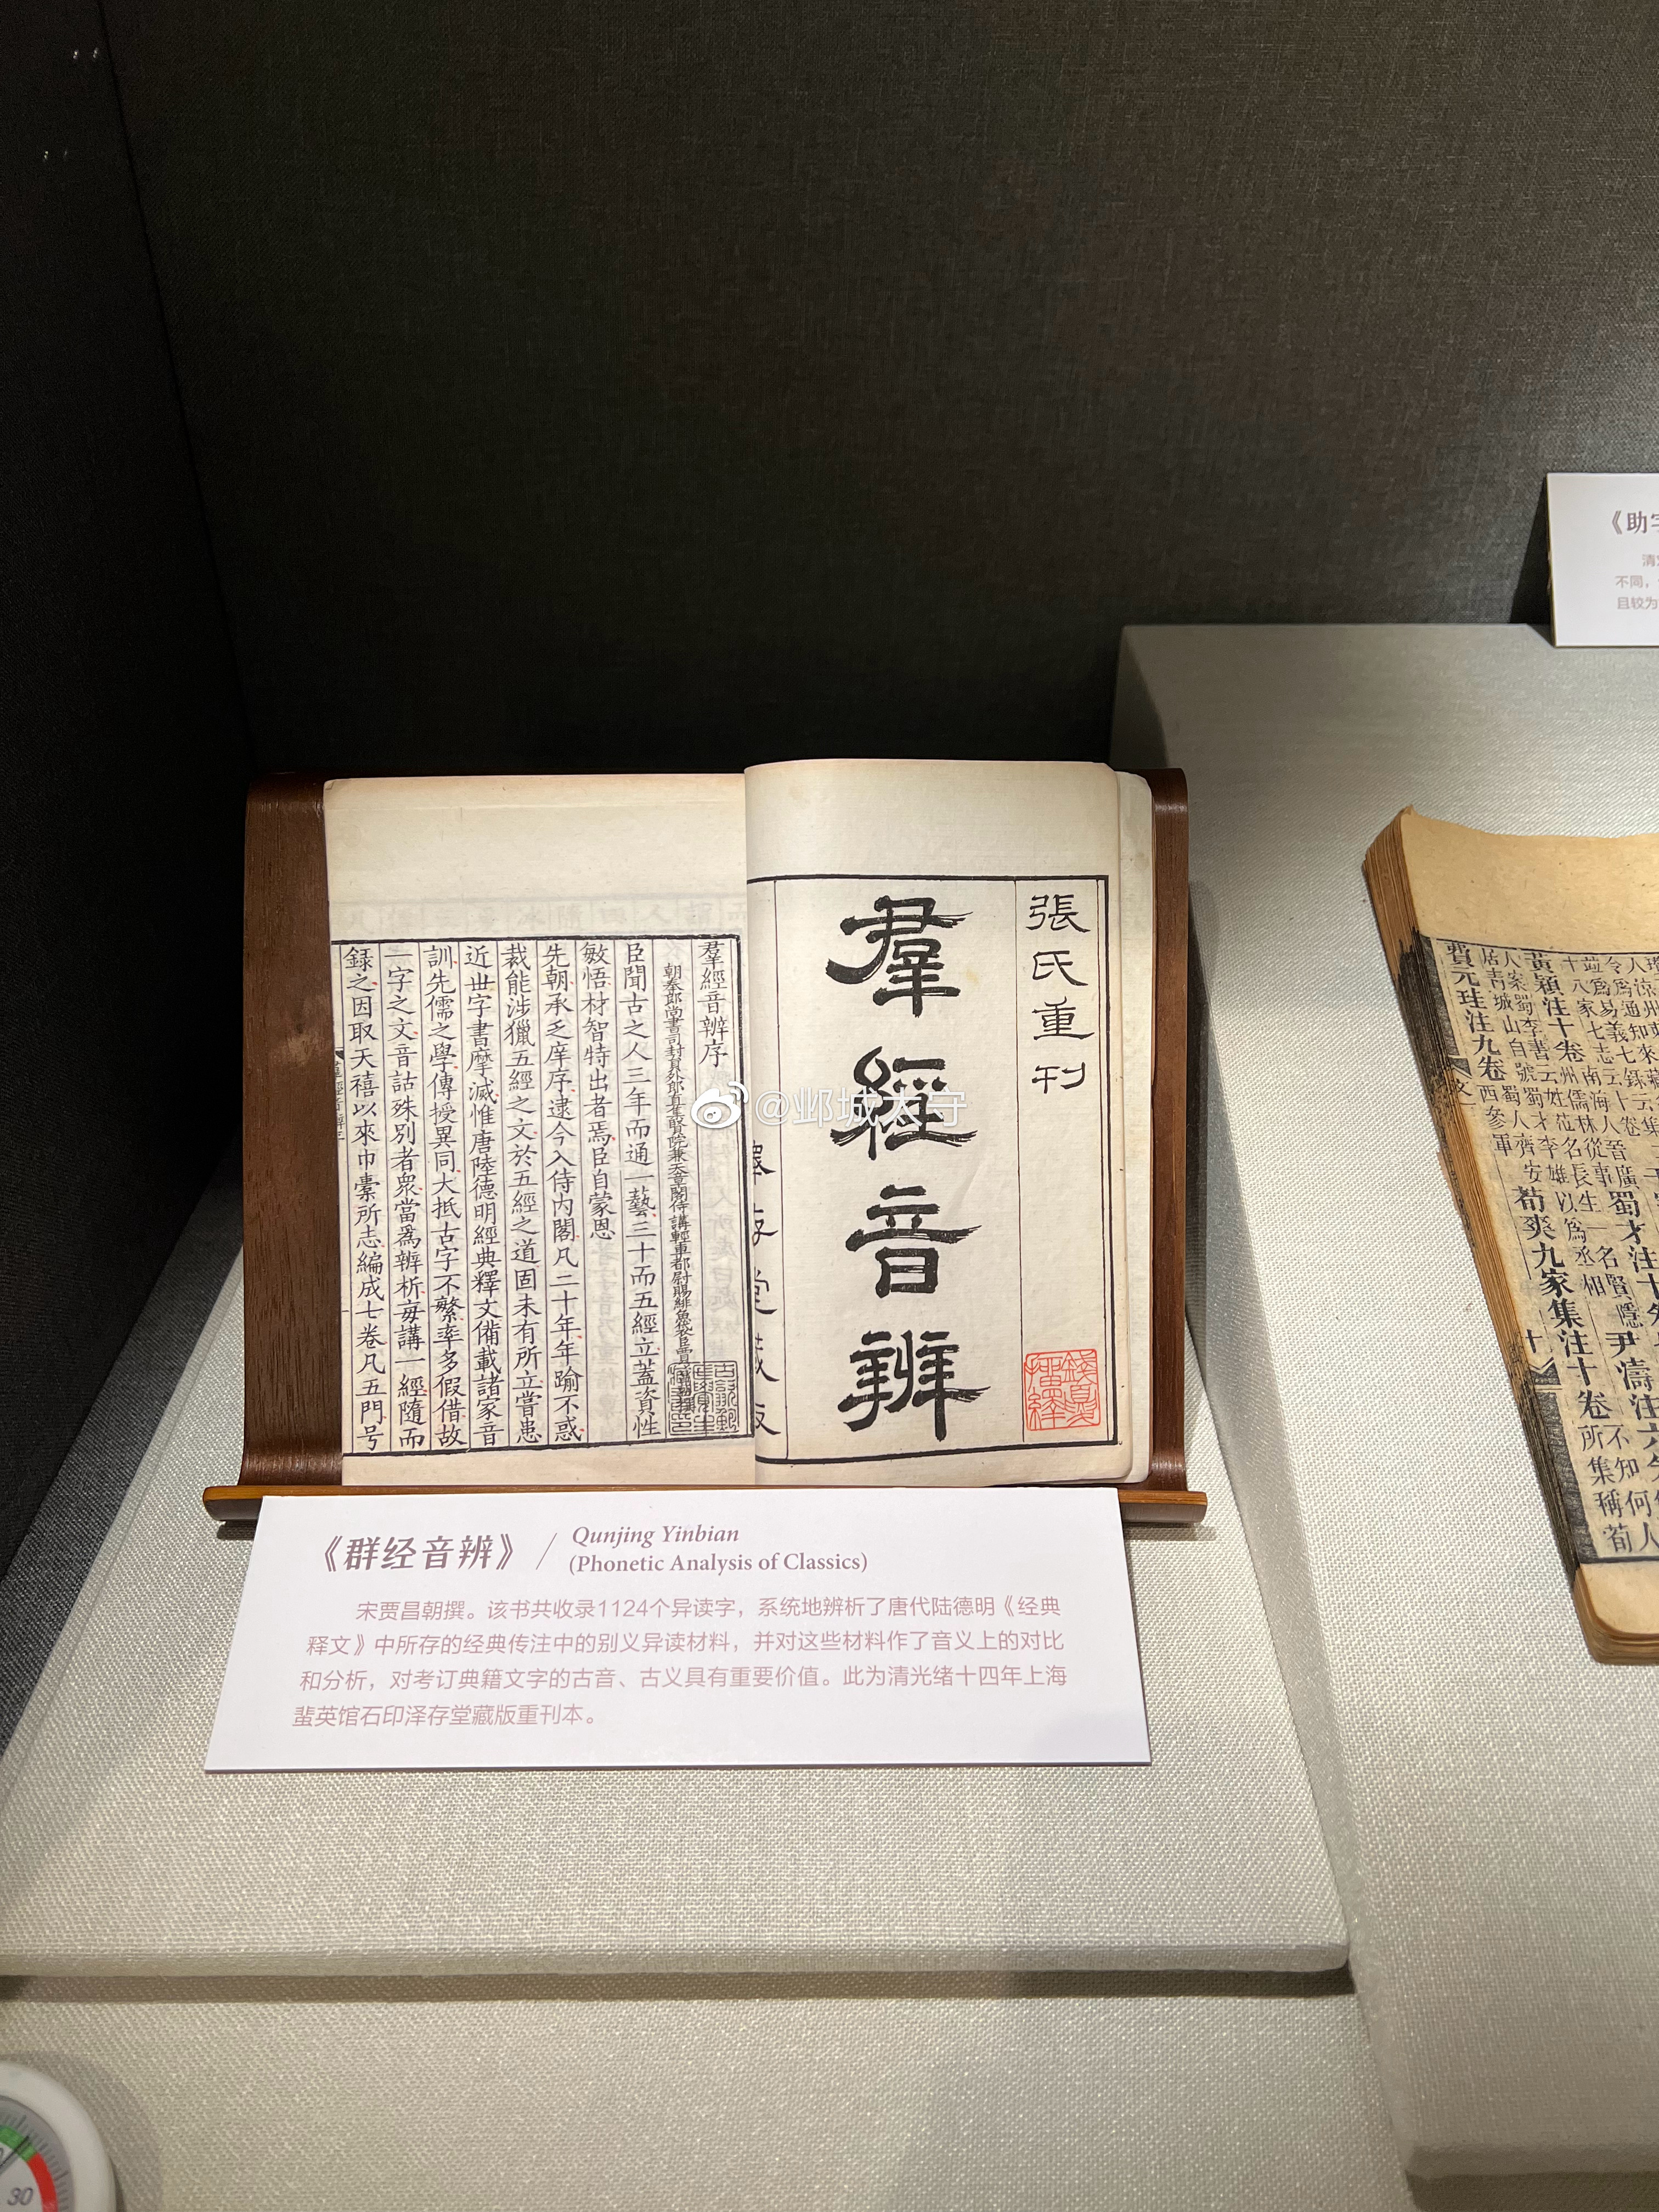 張氏重刊
羣經音辨
羣經音辨序
臣聞古之人三年而通一藝三十而五經立蓋資性
敏悟材智特出者焉臣自蒙恩
先朝承乏庠序逮今入侍內閣凡二十年年踰不惑
裁能涉獵五經之文於五經之道固未有所立嘗患
近世字書摩滅惟唐陸德明經典釋文備載諸家音
訓先儒之學傳授異同大抵古字不繁率多假借故
一字之文音詁殊別者衆當為辨析每講一經隨而
録之因取天禧以來巾橐所志編成七卷凡五門号
@邺城太守
《群经音辨》/ Qunjing Yinbian
(Phonetic Analysis of Classics)
宋贾昌朝撰。该书共收录1124个异读字，系统地辨析了唐代陆德明《经典
释文》中所存的经典传注中的别义异读材料，并对这些材料作了音义上的对比
和分析，对考订典籍文字的古音、古义具有重要价值。此为清光绪十四年上海
蜚英馆石印泽存堂藏版重刊本。
《助字
不同，
且较为
黃穎注十卷
費元珪注九卷
荀爽九家集注十卷
30